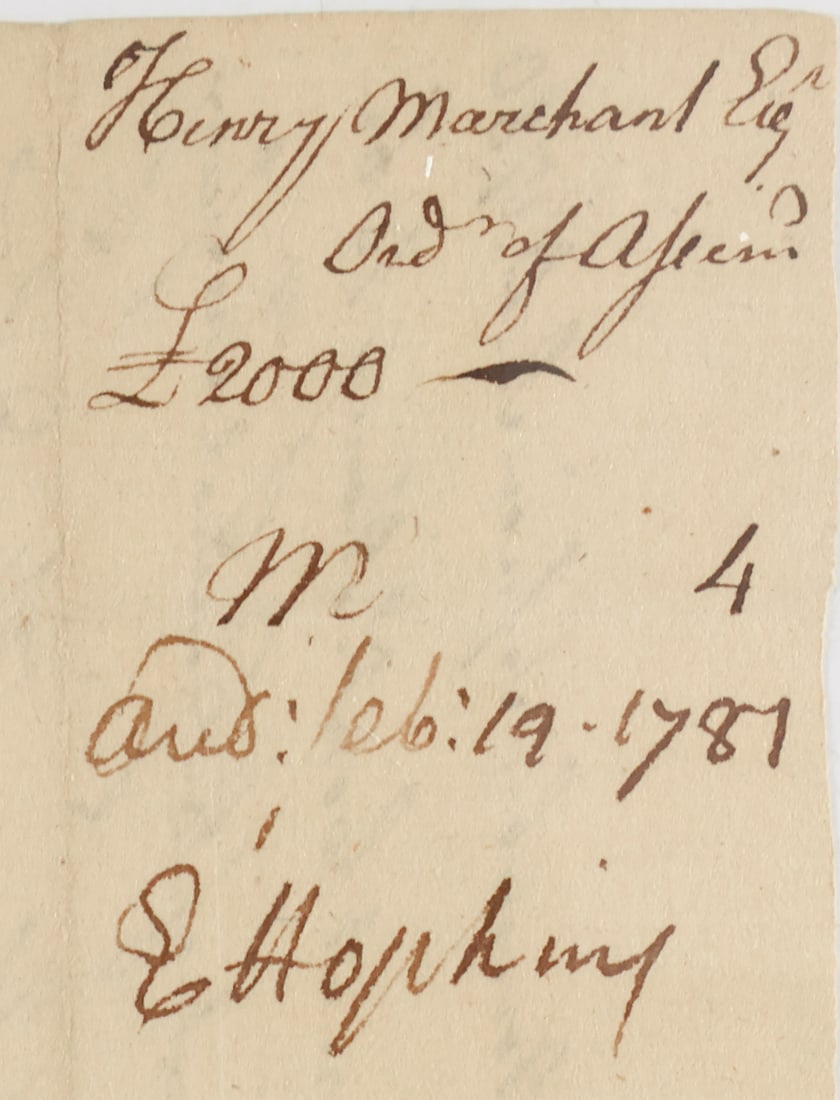 Henry Marchant Esqr
Ordr of Assem
£2000 —
M 4
Aud: feb: 19 - 1781
E Hopkins